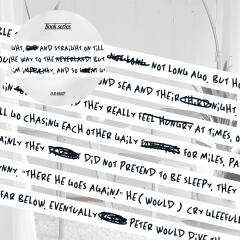 BLE S
Book series
IGHT, AND STRAIGHT ON TILL
THE WAY TO THE NEVERLAND! BUT
NOT LONG AGO. BUT HO
AND SO
ND SEA AND THEIR THIRD NIGHT
AND THEY REALLY FEEL HUNGRY AT TIMES,
LL GO CHASING EACH OTHER GAILY FOR MILES, PA
AINLY THEY DID NOT PRETEND TO BE SLEEPY, THEY
NNY. "THERE HE GOES AGAIN!" HE (WOULD ) CRY GLEEFULL
FAR BELOW. EVENTUALLY PETER WOULD DIVE TH